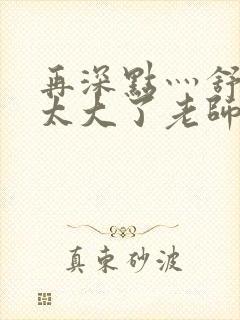 再深點灬舒
太大了老師
真東砂波